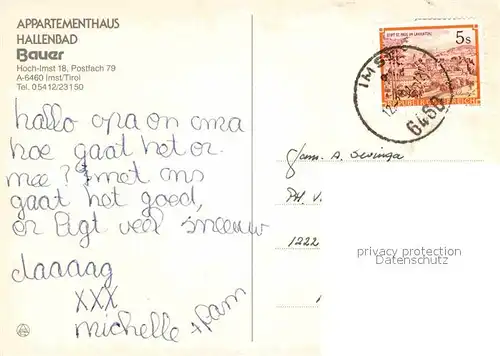 APPARTEMENTHAUS
HALLENBAD
Bauer
Hoch-Imst 18, Postfach 79
A-6460 Imst/Tirol
Tel. 05412/23150
hallo opa on oma
hoe gaat het er
mee? met ons
gaat het goed,
er ligt veel sneeuw
daaaag
XXX
michelle + fam
5s
IMST
6460
fam. A. Sevinga
PH. V.
1222
privacy protection
Datenschutz